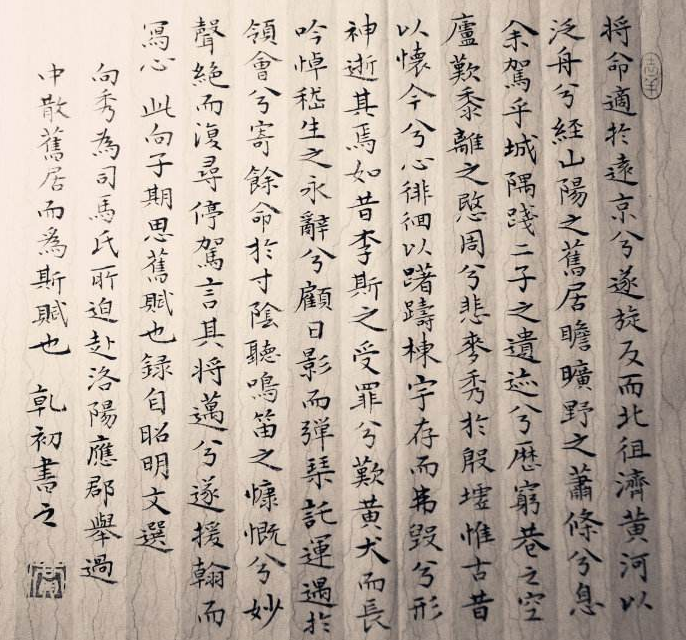 将命適於遠京兮遂旋反而北徂濟黄河以
泛舟兮經山陽之舊居瞻曠野之蕭條兮息
余駕乎城隅踐二子之遺迹兮歷窮巷之空
廬歎黍離之愍周兮悲麥秀於殷墟惟古昔
以懷今兮心徘徊以躇躊棟宇存而弗毀兮形
神逝其焉如昔李斯之受罪兮歎黄犬而長
吟悼嵇生之永辭兮顧日影而彈琴託運遇於
領會兮寄餘命於寸陰聽鳴笛之慷慨兮妙
聲絶而復尋停駕言其将邁兮遂援翰而
寫心 此向子期思舊賦也録自昭明文選
向秀為司馬氏所迫赴洛陽應郡舉過
中散舊居而為斯賦也 乾初書之